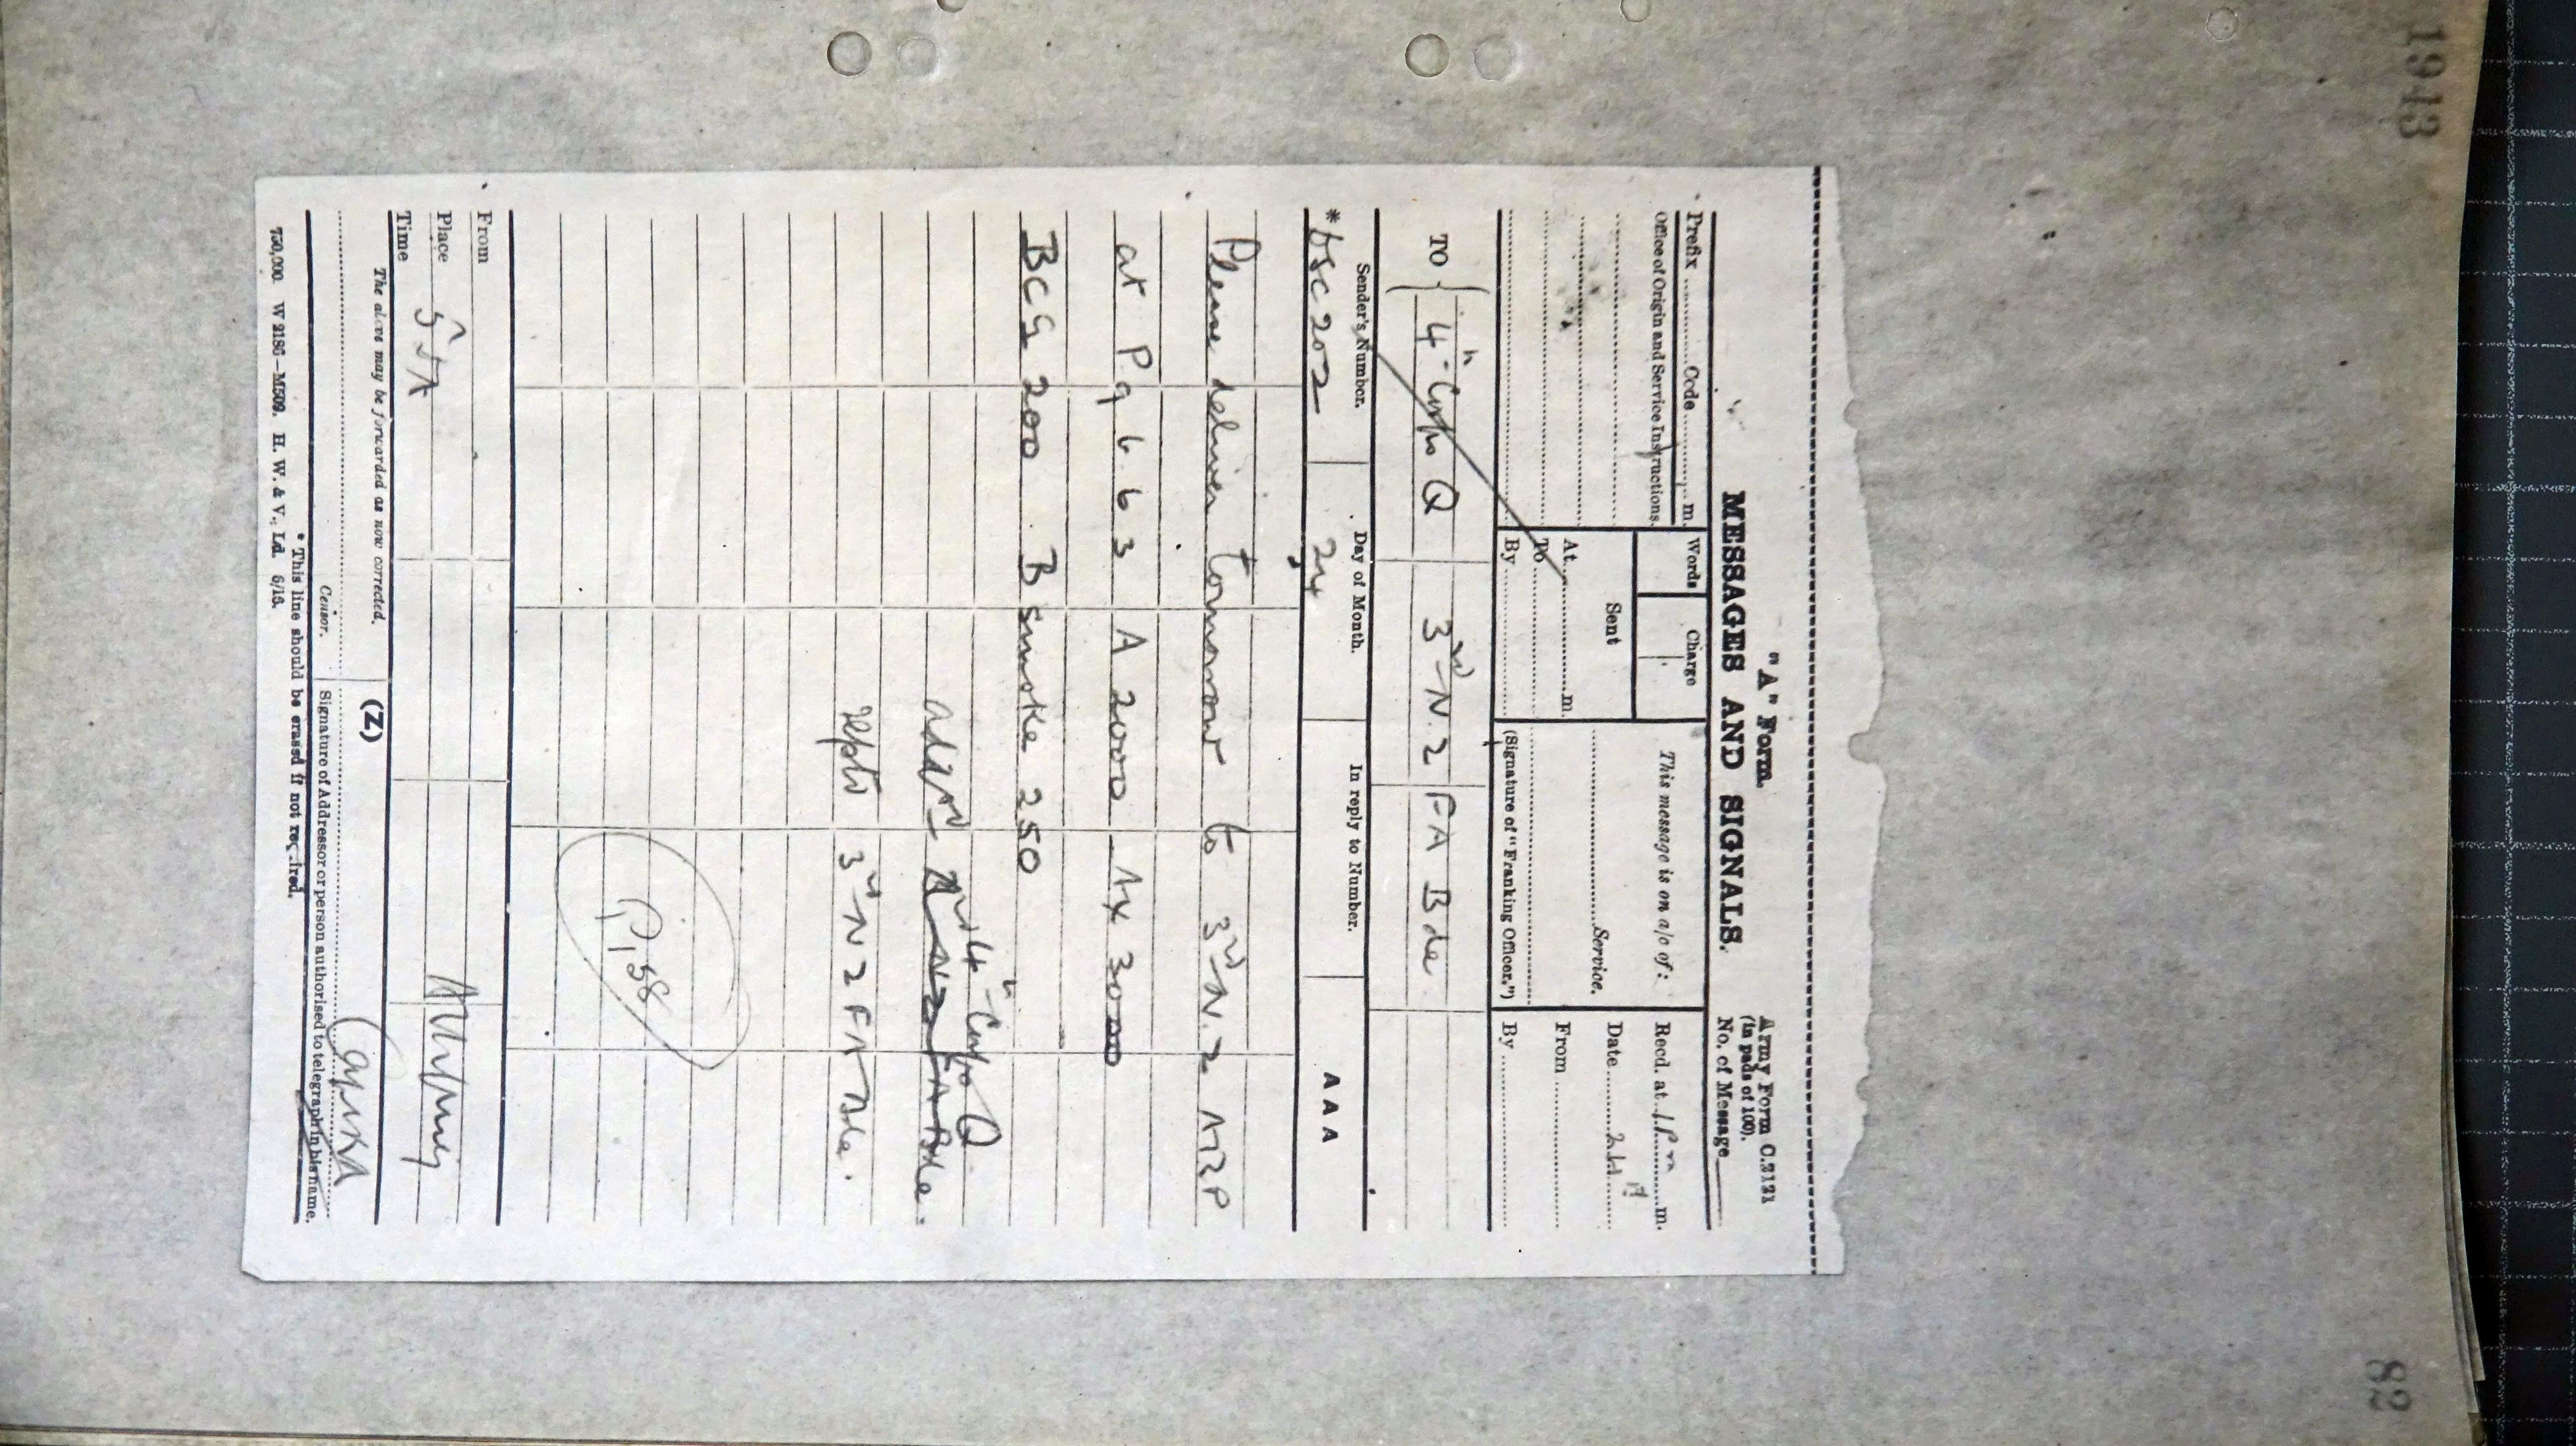 1943
"A" Form.
MESSAGES AND SIGNALS.
Army Form C.2121
(In pads of 100).
No. of Message
Prefix ... Code ... m.
Office of Origin and Service Instructions.
Words
Charge
Sent
At ... m.
To
By
This message is on a/c of:
Service.
(Signature of "Franking Officer.")
Recd. at 1 P m m.
Date
From
By
TO
4th Corps Q
3rd N.Z FA Bde
Sender's Number.
Day of Month.
In reply to Number.
AAA
* BSC 202
24
Please deliver tomorrow to 3rd N.Z ARP
at P 9 b 6 3 A 2000 AX 3000
BCG 200 B smoke 250
4th Corps Q
addsd
reptd 3rd NZ FA Bde.
P, 58
From
Place
Time
The above may be forwarded as now corrected.
(Z)
Censor.
Signature of Addressor or person authorised to telegraph in his name.
* This line should be erased if not required.
750,000. W 2186—M509. H. W. & V., Ld. 6/16.
82